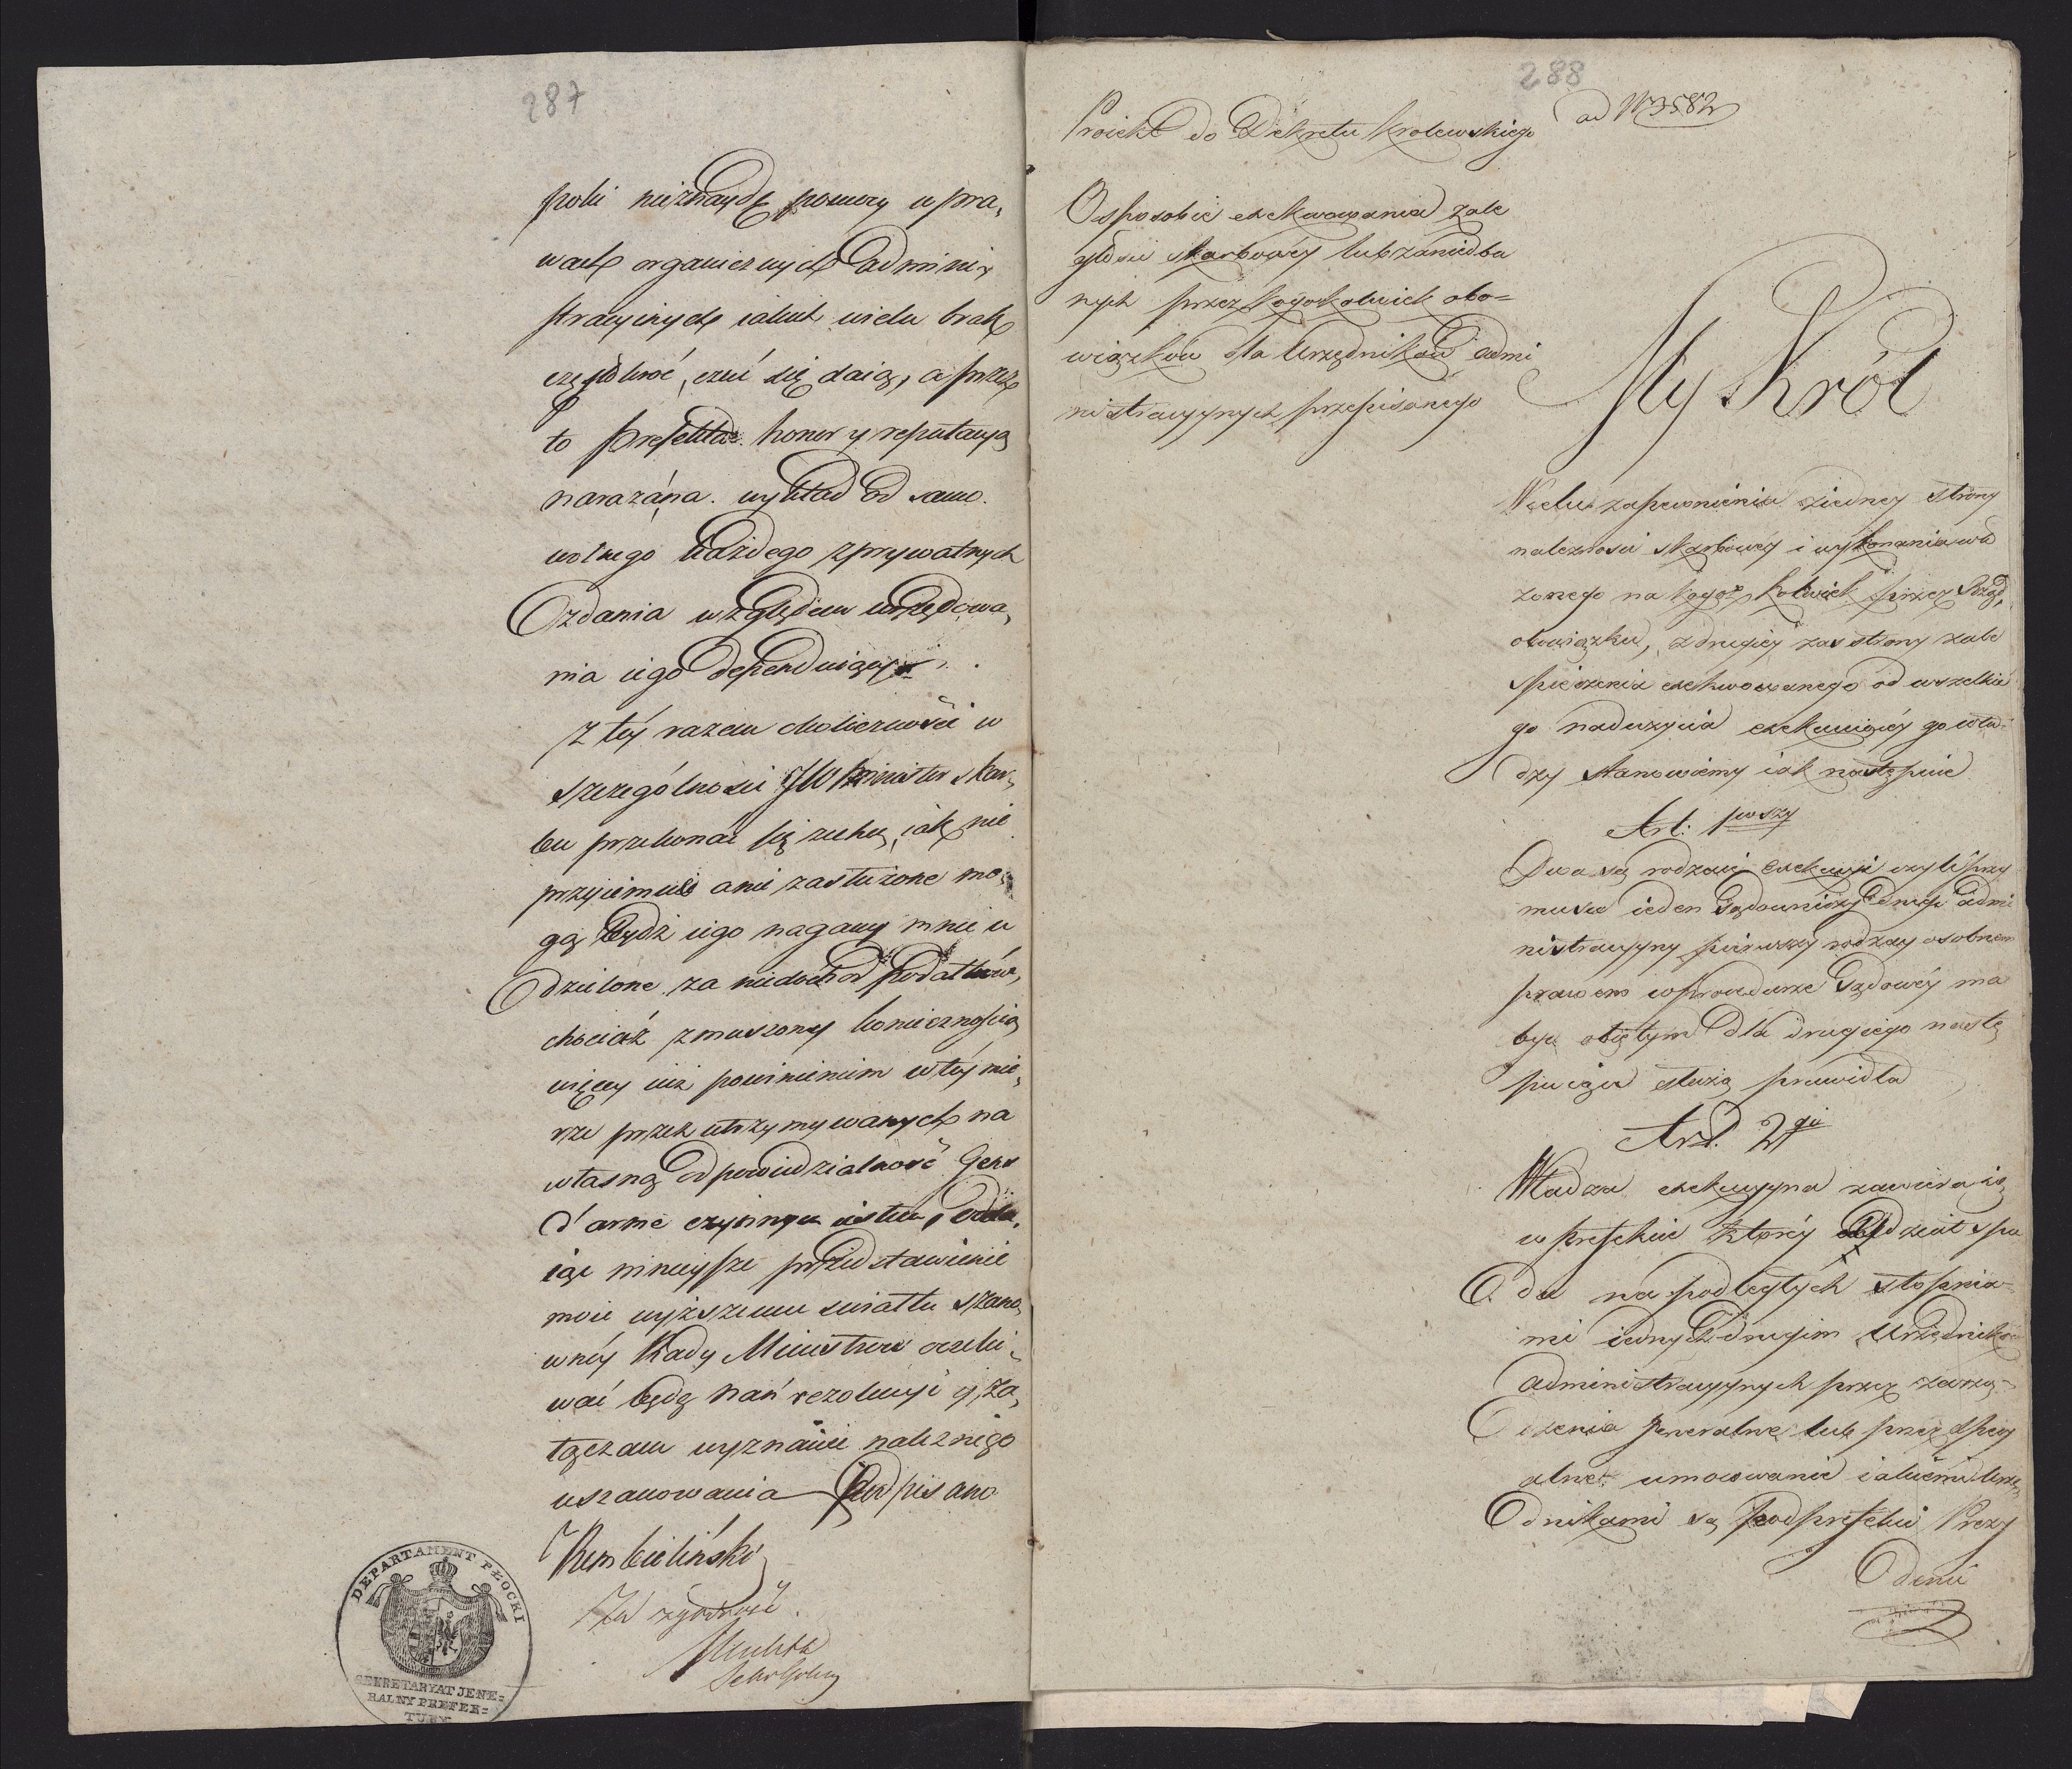 287
poki nieznaydę pomocy w pra,
wach organicznych admini,
stracyinych iakich wielu brak
częstokroć, czuć się daią, a przez
to Prefekta honor y reputacyą
narażána. wykład od samo.
wolnego każdego z prywatnych
zdania względem urzędowa,
nia iego dependuiący.
Z téy razem okoliczności w
szczególności JW Minister Skar,
bu przekonać się zechce, iak nie
przyiemne anie zasłużone mo,
gą bydź iego nagany mnie u
dzielone za niedochod podatków,
chociaż zmuszony koniecznością
więcey iuż powinienem w téy mie,
rze przez utrzymywanych na
własną odpowiedzialność Gens
d'arme czynnym iestem, Odda,
iąc ninieysze przedstawienie
moie wyższemu światłu szano,
wnéy Rady Ministrów oczeki,
wać będę nań rezolucyi y za,
łączam wyznanie należnego
uszanowania Podpisano
Rembieliński
Za zgodność
DEPARTAMENT PŁOCKI
SEKRETARYAT JENE=
RALNY PREFEK=
TURY
288
ad N 3582
Proiekt do Dekretu Krolewskiego
O sposobie exekwowania zale
głości skarbowey lub zaniedba
nych przez kogokolwiek obo=
wiązków dla Urzędników admi
nistracyynych przepisanego
My Król
W celu zapewnienia z iedney strony
należności skarbowey i wykonania wło
żonego na kogoż kolwiek przez Rząd,
obowiązku, z drugiey zas strony zabe
śpieczenia exekwowanego od wszelkie
go nadużycia exekwuiącéy go wła=
dzy stanowiemy iak następuie
Art: 1wszy
Dwa są rodzaie exekucyi czyli przy
musu ieden Sądowniczy drugi admi
nistracyyny pierwszy rodzay osobnem
prawem w procedurze Sądowéy ma
być obiętym dla drugiego nastę
puiące służą prawidła
Art. 2gi
Władza exekucyyna zawiera się
w prefekcie którey oddział spa
da na podległych stopnia=
mi iednych drugim Urzędników
administracyynych przez zarzą=
dzenia generalne lub przez specy
alne umocowanie iakiemi Urzę,
dnikami są podprefekci Prezy
denci